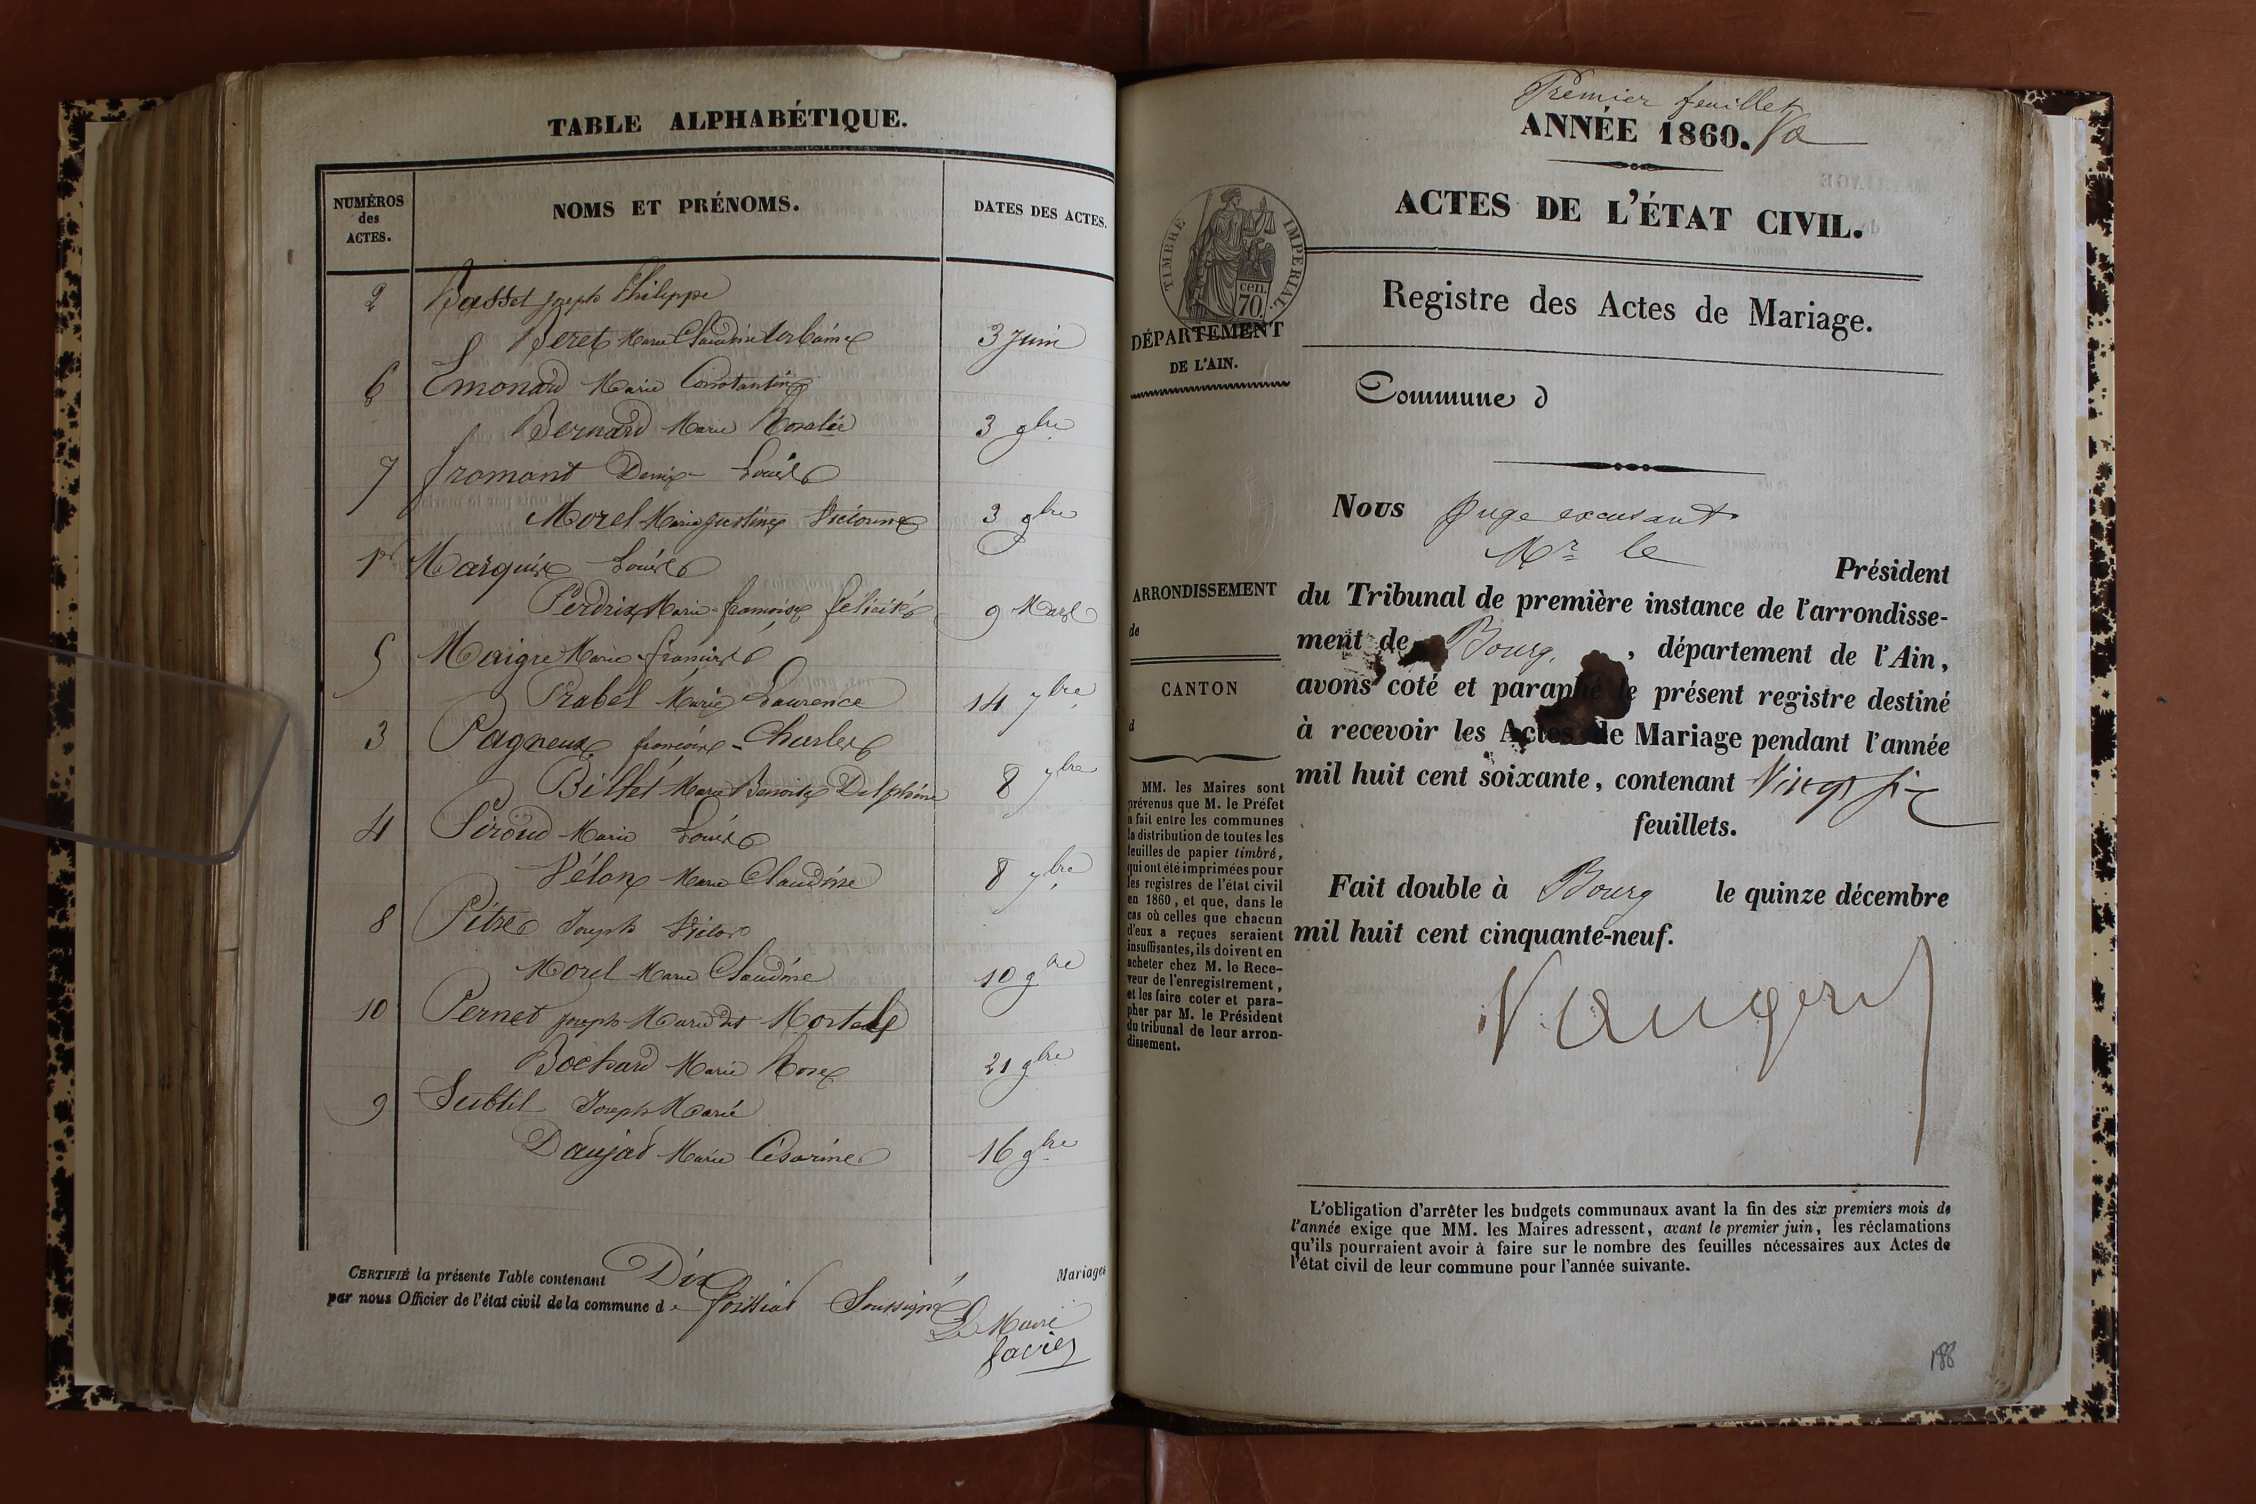 TABLE ALPHABÉTIQUE.
NUMÉROS
des
ACTES.
NOMS ET PRÉNOMS.
DATES DES ACTES.
2 Basset Joseph Philippe
Peret Marie Claudine 3 Juin
6 Emonard Marie Constantin
Bernard Marie Rosalie 3 9bre
7 fromont Denis Louis
Morel Marie Justine Victorine 3 9bre
1er Marquis Louis
Perdrix Marie françoise félicité 9 Mars
5 Maigre Marie françois
Prabel Marie Laurence 14 7bre
3 Pagneux françois Charles
Billet Marie Benoite Delphine 8 7bre
4 Péroud Marie Louis
Vélon Marie Claudine 8 7bre
8 Pitre Joseph Victor
Morel Marie Claudine 10 9bre
10 Pernet Joseph Marie dit
Bochard Marie Rose 21 9bre
9 Subtil Joseph Marie
Daujat Marie Césarine 16 9bre
CERTIFIÉ la présente Table contenant Dix Mariages
par nous Officier de l'état civil de la commune de Soussigné
Le Maire
Premier feuillet
ANNÉE 1860.
ACTES DE L'ÉTAT CIVIL.
TIMBRE IMPÉRIAL
cen.
70.
DÉPARTEMENT
DE L'AIN.
Registre des Actes de Mariage.
Commune d
Nous Juge excusant
Mr le Président
du Tribunal de première instance de l'arrondisse-
ment de Bourg, département de l'Ain,
avons coté et paraphé le présent registre destiné
à recevoir les Actes de Mariage pendant l'année
mil huit cent soixante, contenant Vingt six
feuillets.
Fait double à Bourg le quinze décembre
mil huit cent cinquante-neuf.
ARRONDISSEMENT
de
CANTON
d
MM. les Maires sont
prévenus que M. le Préfet
a fait entre les communes
la distribution de toutes les
feuilles de papier timbré,
qui ont été imprimées pour
les registres de l'état civil
en 1860, et que, dans le
cas où celles que chacun
d'eux a reçues seraient
insuffisantes, ils doivent en
acheter chez M. le Rece-
veur de l'enregistrement,
et les faire coter et para-
pher par M. le Président
du tribunal de leur arron-
dissement.
L'obligation d'arrêter les budgets communaux avant la fin des six premiers mois de
l'année exige que MM. les Maires adressent, avant le premier juin, les réclamations
qu'ils pourraient avoir à faire sur le nombre des feuilles nécessaires aux Actes de
l'état civil de leur commune pour l'année suivante.
188